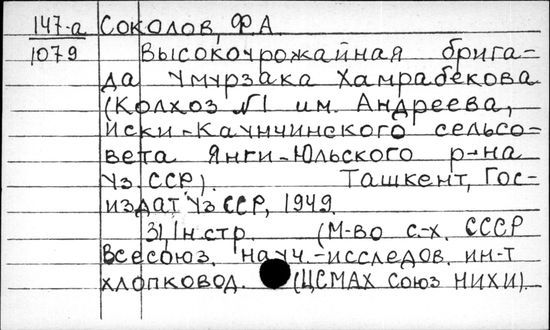 147-а Соколов, Ф А.
1079 Высокоурожайная брига-
да Умурзака Хамрабекова
(Колхоз №1 им. Андреева,
Иски-Каунчинского сельсо-
вета Янги-Юльского р-на
Уз. ССР). Ташкент, Гос-
издат Уз ССР, 1949.
31,1н.стр. (М-во с.-х. СССР
Всесоюз. науч.-исследов. ин-т
хлопковод. (ЦСМАХ Союз НИХИ).